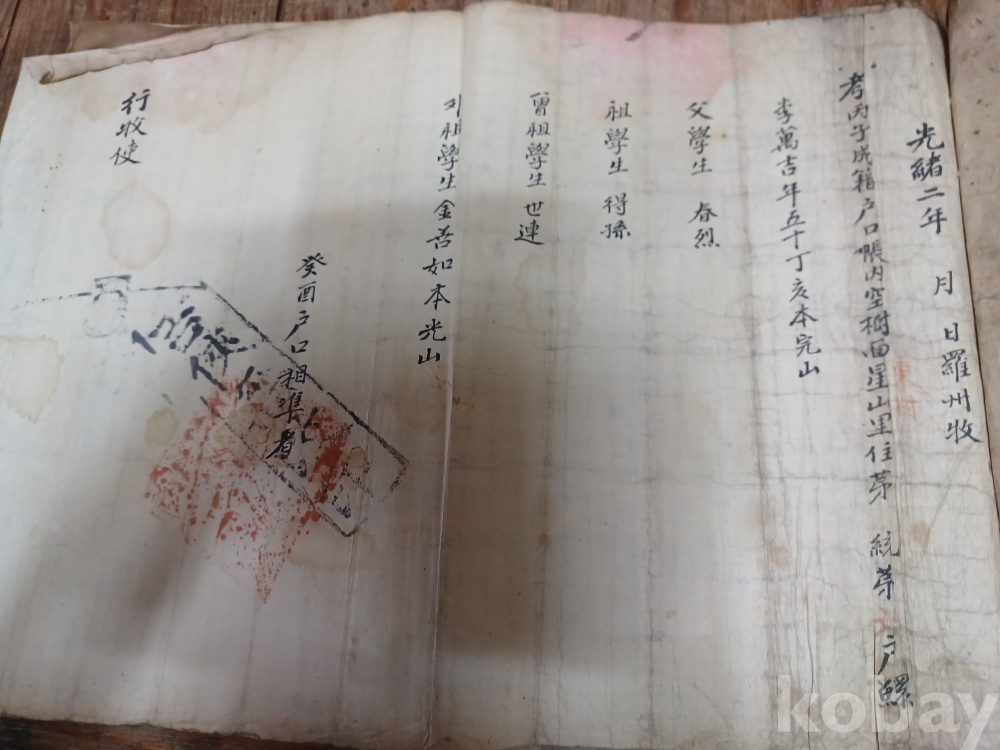 光緒二年 月 日羅州牧
考丙子成籍戶口帳內空樹面星山里住苐 統苐 戶鰥
李萬吉年五十丁亥本完山
父學生 春烈
祖學生 得孫
曾祖學生 世連
外祖學生金善如本光山
癸酉戶口相準者
行牧使
kobay